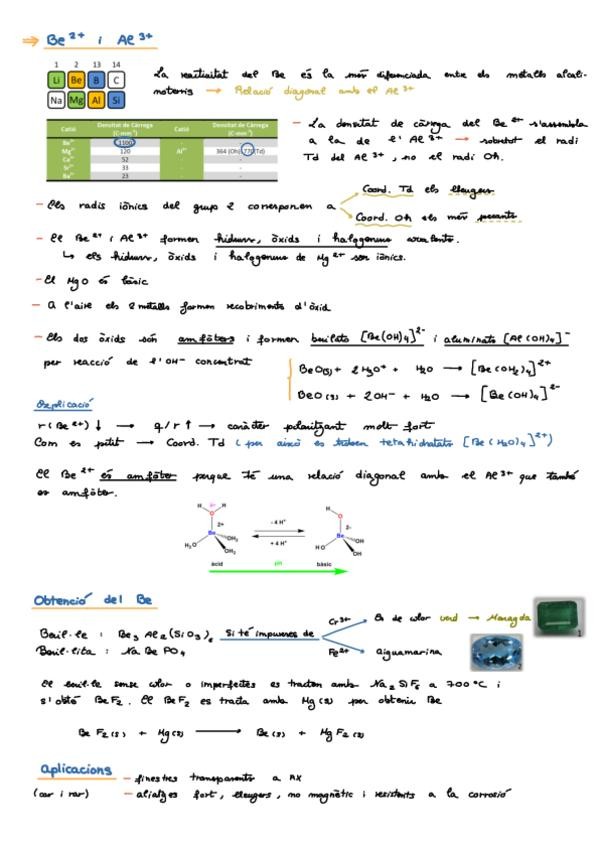 ⇒ Be²⁺ i Al³⁺
1 2 13 14
Li Be B C
Na Mg Al Si
La reactivitat del Be és la més diferenciada entre els metalls alcali-
noterris → Relació diagonal amb el Al³⁺
Catió Densitat de Càrrega (C·mm⁻³) Catió Densitat de Càrrega (C·mm⁻³)
Be²⁺ 1100 -
Mg²⁺ 120 Al³⁺ 364 (Oh), 770(Td)
Ca²⁺ 52 -
Sr²⁺ 33 -
Ba²⁺ 23 -
- La densitat de càrrega del Be²⁺ s'assembla
a la de l'Al³⁺ → sobretot el radi
Td del Al³⁺, no el radi Oh.
- Els radis iònics del grup 2 corresponen a
Coord. Td els lleugers
Coord. Oh els més pesants
- El Be²⁺ i Al³⁺ formen hidrurs, òxids i halogenurs covalents.
↳ els hidrurs, òxids i halogenurs de Mg²⁺ son iònics.
- El MgO és bàsic
- A l'aire els 2 metalls formen recobriments d'òxid
- Els dos òxids són amfòters i formen beril·lats [Be(OH)₄]²⁻ i aluminats [Al(OH)₄]⁻
per reacció de l'OH⁻ concentrat
BeO(s) + 2H₃O⁺ + H₂O → [Be(OH₂)₄]²⁺
BeO(s) + 2OH⁻ + H₂O → [Be(OH)₄]²⁻
Explicació
r(Be²⁺)↓ → q/r↑ → caràcter polaritzant molt fort
Com es petit → Coord. Td (per això es troben tetrahidratats [Be(H₂O)₄]²⁺)
El Be²⁺ és amfòter perque té una relació diagonal amb el Al³⁺ que també
es amfòter.
H H
δ+
O
2+
Be
H₂O OH₂
OH₂
àcid
- 4 H⁺
+ 4 H⁺
pH
H
O
2-
Be
HO OH
OH
bàsic
Obtenció del Be
Beril·le : Be₃Al₂(SiO₃)₆ Si té impureses de
Cr³⁺ Es de color verd → Maragda
Fe²⁺ aiguamarina
Beril·lita : NaBePO₄
1
2
El beril·le sense color o imperfectes es tracten amb Na₂SiF₆ a 700°C i
s'obté BeF₂. El BeF₂ es tracta amb Mg(s) per obtenir Be
BeF₂(s) + Mg(s) → Be(s) + MgF₂(s)
Aplicacions
(car i rar)
- finestres transparents a RX
- aliatges fort, lleugers, no magnètic i resistents a la corrosió